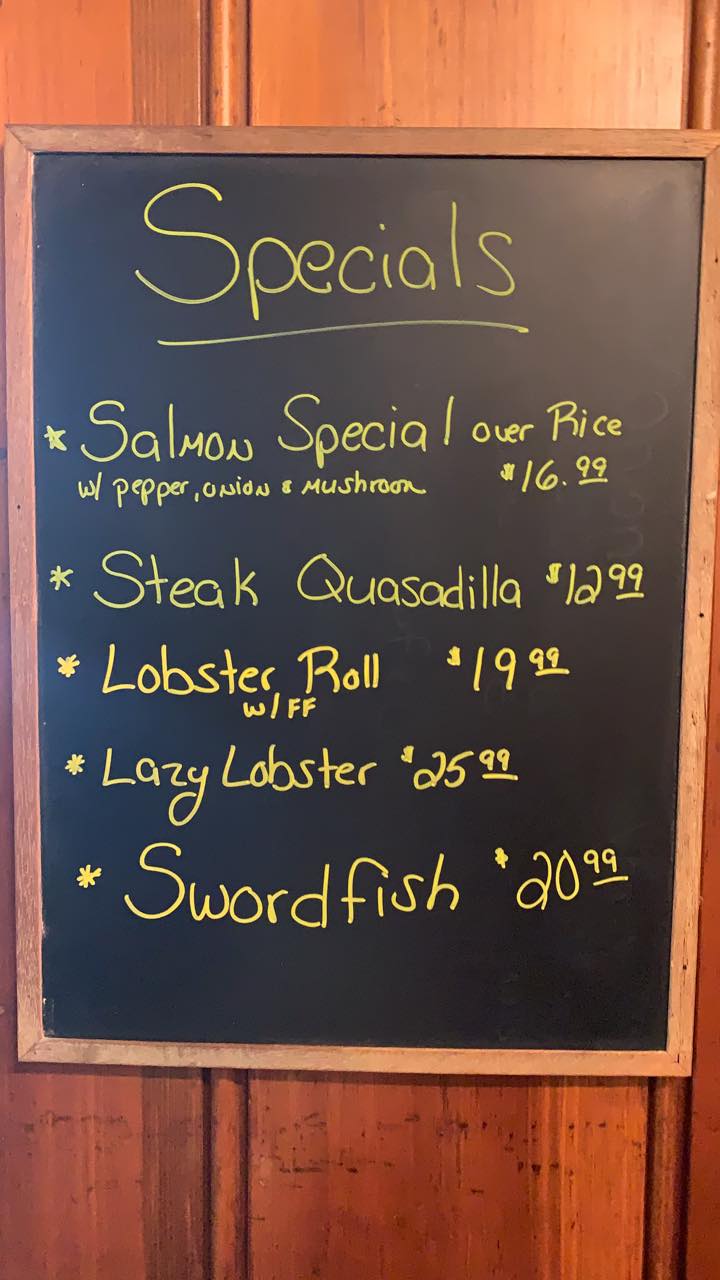 Specials
* Salmon Special over Rice
w/ pepper, onion & Mushroom $16.99
* Steak Quasadilla $12.99
* Lobster Roll $19.99
w/FF
* Lazy Lobster $25.99
* Swordfish $20.99